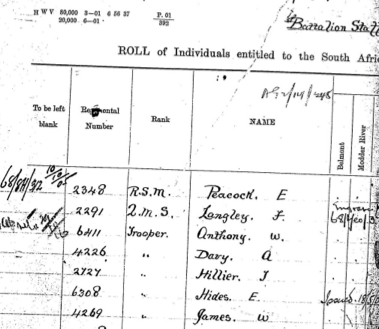 H W V 50,000 3—01 6 56 37
20,000 6—01
P. 01
392
Battalion
ROLL of Individuals entitled to the South Afri
To be left blank
Regimental Number
Rank
NAME
Belmont
Modder River
68/
2348 R.S.M. Peacock. E
2291 Q.M.S. Langley. F.
6411 Trooper. Anthony. W.
4226 " Davy. A
2727 " Hillier. J
6308 " Hides. E.
4269 " James. W